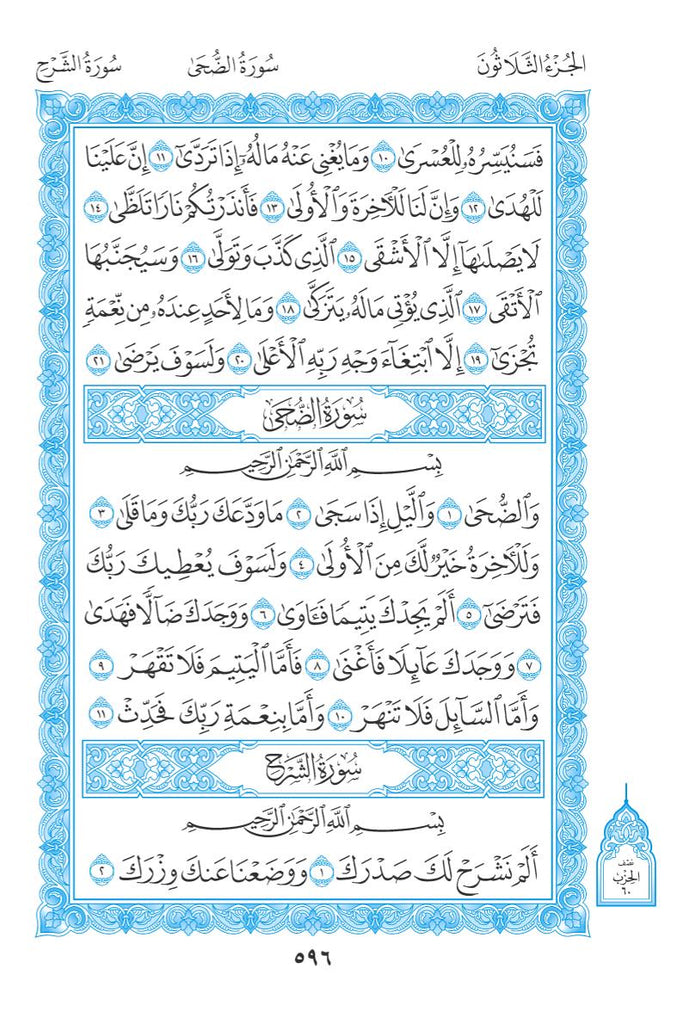 الجُزْءُ الثَّلَاثُونَ سُورَةُ الضُّحَىٰ سُورَةُ الشَّرْحِ
فَسَنُيَسِّرُهُۥ لِلْعُسْرَىٰ ١٠ وَمَا يُغْنِى عَنْهُ مَالُهُۥٓ إِذَا تَرَدَّىٰٓ ١١ إِنَّ عَلَيْنَا
لَلْهُدَىٰ ١٢ وَإِنَّ لَنَا لَلْءَاخِرَةَ وَٱلْأُولَىٰ ١٣ فَأَنذَرْتُكُمْ نَارًا تَلَظَّىٰ ١٤
لَا يَصْلَىٰهَآ إِلَّا ٱلْأَشْقَى ١٥ ٱلَّذِى كَذَّبَ وَتَوَلَّىٰ ١٦ وَسَيُجَنَّبُهَا
ٱلْأَتْقَى ١٧ ٱلَّذِى يُؤْتِى مَالَهُۥ يَتَزَكَّىٰ ١٨ وَمَا لِأَحَدٍ عِندَهُۥ مِن نِّعْمَةٍ
تُجْزَىٰٓ ١٩ إِلَّا ٱبْتِغَآءَ وَجْهِ رَبِّهِ ٱلْأَعْلَىٰ ٢٠ وَلَسَوْفَ يَرْضَىٰ ٢١
سُورَةُ الضُّحَىٰ
بِسْمِ ٱللَّهِ ٱلرَّحْمَٰنِ ٱلرَّحِيمِ
وَٱلضُّحَىٰ ١ وَٱلَّيْلِ إِذَا سَجَىٰ ٢ مَا وَدَّعَكَ رَبُّكَ وَمَا قَلَىٰ ٣
وَلَلْءَاخِرَةُ خَيْرٌ لَّكَ مِنَ ٱلْأُولَىٰ ٤ وَلَسَوْفَ يُعْطِيكَ رَبُّكَ
فَتَرْضَىٰٓ ٥ أَلَمْ يَجِدْكَ يَتِيمًا فَـَٔاوَىٰ ٦ وَوَجَدَكَ ضَآلًّا فَهَدَىٰ
٧ وَوَجَدَكَ عَآئِلًا فَأَغْنَىٰ ٨ فَأَمَّا ٱلْيَتِيمَ فَلَا تَقْهَرْ ٩
وَأَمَّا ٱلسَّآئِلَ فَلَا تَنْهَرْ ١٠ وَأَمَّا بِنِعْمَةِ رَبِّكَ فَحَدِّثْ ١١
سُورَةُ الشَّرْحِ
بِسْمِ ٱللَّهِ ٱلرَّحْمَٰنِ ٱلرَّحِيمِ
أَلَمْ نَشْرَحْ لَكَ صَدْرَكَ ١ وَوَضَعْنَا عَنكَ وِزْرَكَ ٢
نصف
الحزب
٦٠
٥٩٦